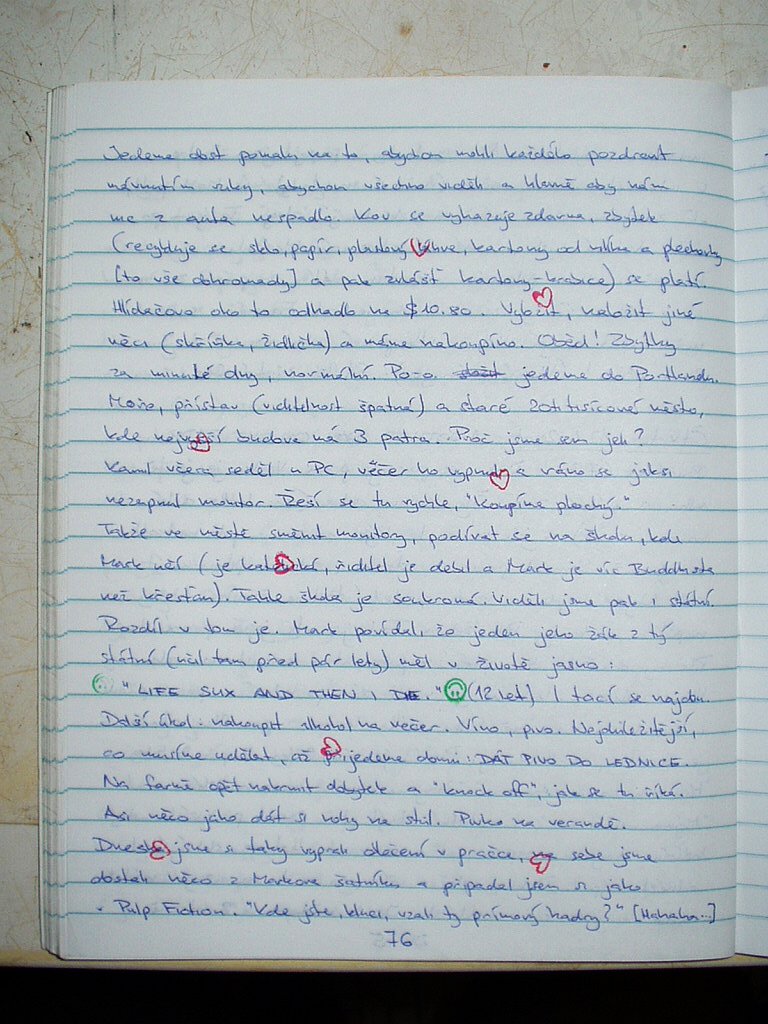 Jedeme dost pomalu na to, abychom mohli každého pozdravit
mávnutím ruky, abychom všechno viděli a hlavně aby nám
nic z auta nespadlo. Kov se vyhazuje zdarma, zbytek
(recykluje se sklo, papír, plastový láhve, kartony od mlíka a plechovky
[to vše dohromady] a pak zvlášť kartony-krabice) se platí.
Hlídačovo oko to odhadlo na $10.80. Vyložit, naložit jiné
věci (skříňka, židlička) a máme nakoupíno. Oběd! Zbytky
za minulé dny, normální. Po-o. jedeme do Portlandu.
Moře, přístav (viditelnost špatná) a staré 20ti tisícové město,
kde největší budova má 3 patra. Proč jsme sem jeli?
Kamil včera seděl u PC, večer ho vypnul a ráno se jaksi
nezapnul monitor. Řeší se tu rychle, "Koupíme plochý."
Takže ve městě směnit monitory, podívat se na školu, kde
Mark učí (je katolická, ředitel je debil a Mark je víc Buddhista
než křesťan). Tahle škola je soukromá. Viděli jsme pak i státní.
Rozdíl v tom je. Mark povídal, že jeden jeho žák z tý
státní (učil tam před pár lety) měl v životě jasno:
"LIFE SUX AND THEN I DIE." (12 let) I tací se najdou.
Další úkol: nakoupit alkohol na večer. Víno, pivo. Nejdůležitější,
co musíme udělat, až přijedeme domů: DÁT PIVO DO LEDNICE.
Na farmě opět nakrmit dobytek a "knock off", jak se tu říká.
Asi něco jako dát si nohy na stůl. Pivko na verandě.
Dneska jsme si taky vyprali oblečení v pračce, na sebe jsme
dostali něco z Markova šatníku a připadal jsem si jako
v Pulp Fiction. "Kde jste, kluci, vzali ty prímový hadry?" [Hahaha..]
76